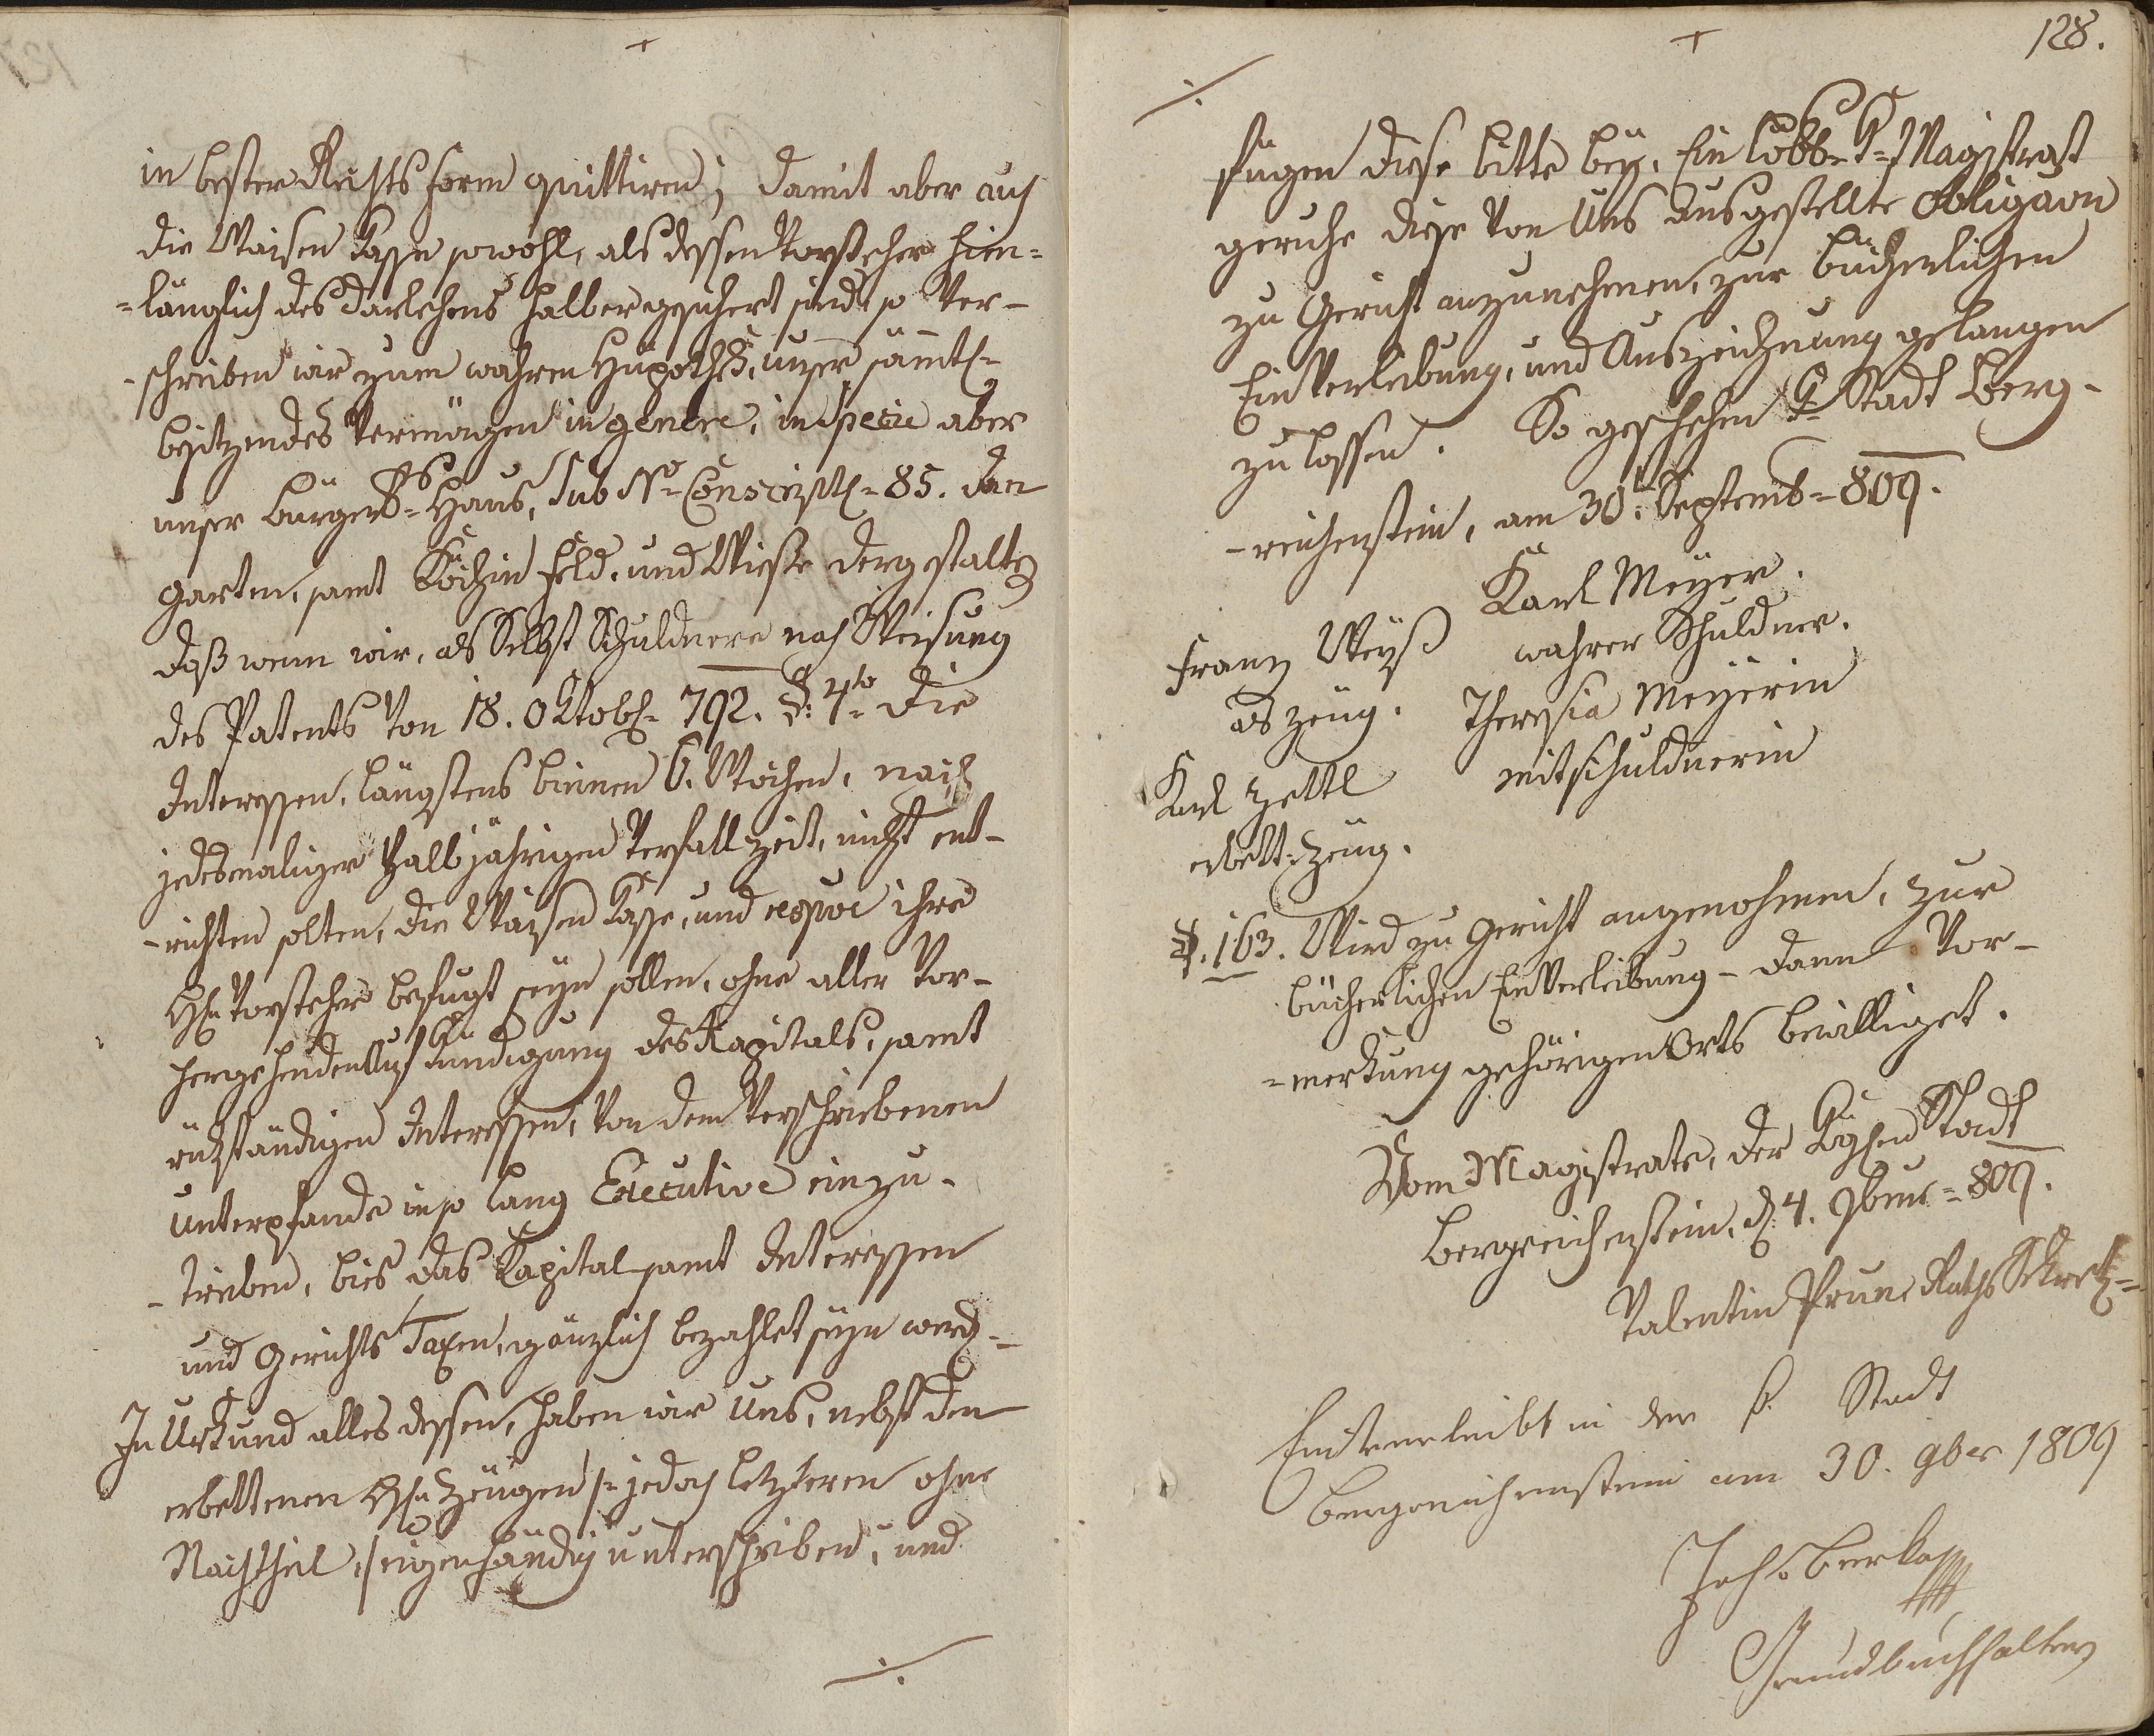 in bester Rechts form quittiren; damit aber auch
die Waisen Kasse sowohl, als dessen Vorsteher hin=
=länglich des Darlehens halber gesichert sind, so ver-
-schreiben wir zum wahren Hÿpothek, unser sämtl=
besitzendes Vermögen in genere, in specie aber
unser Bürgers=Haus, sub No= Conscript= 85. dan
Garten, samt Feld, und Wiesse dergestalten
daß wenn wir, als Selbst Schuldnere nach Weisung
des Patents von 18. Oktob= 792. §: 4to= die
Interessen, längstens binnen 6. Wochen, nach
jedesmaliger halbjährigen Verfallzeit, nicht ent-
-richten solten, die Waisen Kasse, und respve ihre
H= Vorstehere befugt seÿn sollen, ohne aller Vor-
hergehenden Aufkündigung des Kapitals, samt
rükständigen Interessen, von dem Verschriebenen
Unterpfande in so lang Executive einzu-
-trieben, bies das Kapital samt Interessen
und Gerichts Taxen, gänzlich bezahlet seÿn werd=
In Urkund alles dessen, haben wir Uns, nebst den
erbettenen H= Zeugen /: jedoch letzteren ohne
Nachtheil :/ eigenhändig unterschrieben, und
./.
128.
./.
fügen diese bitte beÿ, Ein löbl= K= Magistrat
geruhe diese von Uns ausgestellte Obligaon
zu Gericht anzunehmen, zur bücherlichen
Einverleibung, und Auszeichnung gelangen
zu lassen. So geschehen K= Stadt Berg-
-reichenstein, am 30t= Septemb= 809.
Karl Meÿer.
Franz Weÿß wahrer Schuldner.
als Zeug. Theresia Meÿerin
Karl Zettl mitschuldnerin
erbett= Zeug.
§. 163. Wird zu Gericht angenohmen, zur
bücherlichen Einverleibung - dann Vor-
=merkung gehörigen Orts bewilliget.
Vom Magistrate, der Königlichen Stadt
Bergreichenstein, d= 4. 9bris= 809.
Valentin Prunc Raths Sekret=
Einverleibt in der k. Stadt
Bergreichenstein am 30. 9ber 1809
Joh:
Grundbuchhalter